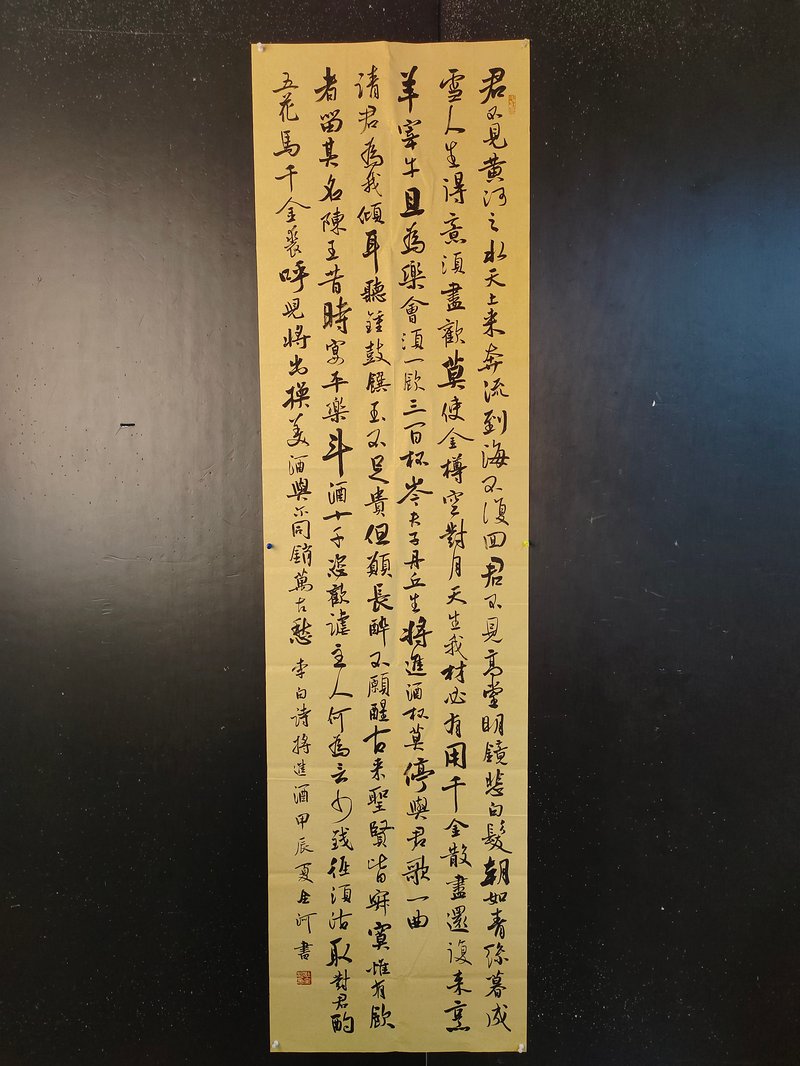 君不見黄河之水天上来奔流到海不復回君不見高堂明鏡悲白髮朝如青絲暮成
雪人生得意須盡歡莫使金樽空對月天生我材必有用千金散盡還復来烹
羊宰牛且為樂會須一飲三百杯岑夫子丹丘生將進酒杯莫停與君歌一曲
請君為我傾耳聽鐘鼓饌玉不足貴但願長醉不願醒古来聖賢皆寂寞惟有飲
者留其名陳王昔時宴平樂斗酒十千恣歡謔主人何為言少錢徑須沽取對君酌
五花馬千金裘呼兒將出換美酒與尔同銷萬古愁 李白詩將進酒甲辰夏河書